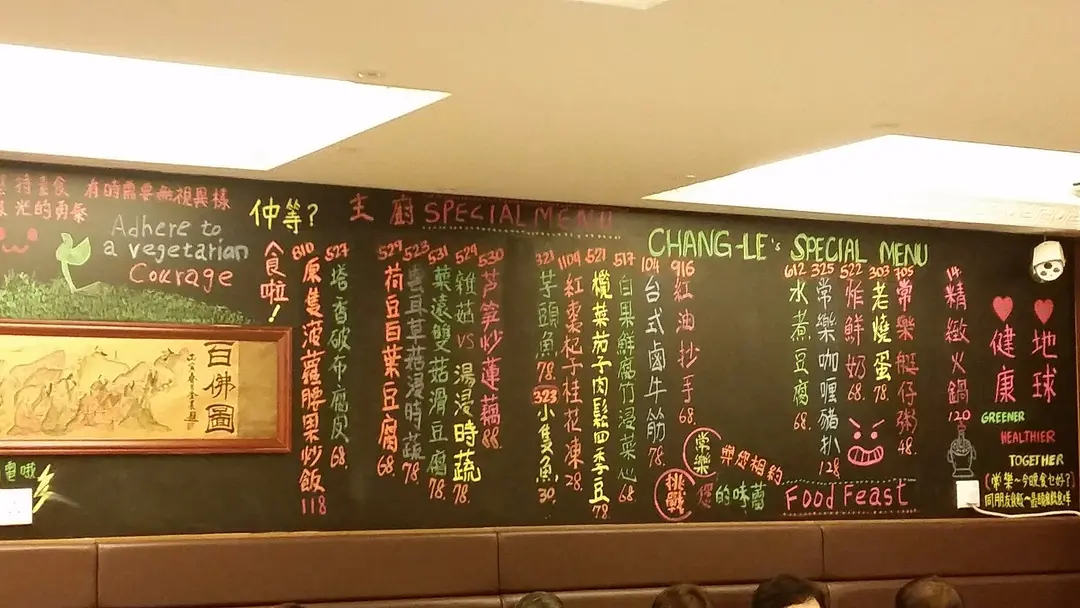 持素食 有時需要無視異樣
光的勇氣
Adhere to
a vegetarian
Courage
百佛圖
仲等?
食啦!
主廚 SPECIAL MENU
810 原隻菠蘿腰果炒飯 118
527 塔香破布腐皮 68.
529 荷豆百葉豆腐 68.
523 雲耳草菇浸時蔬 78.
531 菜遠雙菇滑豆腐 78.
524 雜菇VS湯浸時蔬 78.
530 芦笋炒蓮藕 88.
321 芋頭魚 78.
323 小隻魚 30.
1104 紅棗杞子桂花凍 28.
521 欖菜茄子肉鬆四季豆 78.
517 白果鮮腐竹浸菜心 68
104 台式鹵牛筋 78.
916 紅油抄手 68.
CHANG-LE's SPECIAL MENU
612 水煮豆腐 68.
325 常樂咖喱豬扒 128.
522 炸鮮奶 68.
303 老燒蛋 78.
705 常樂艇仔粥 48.
14 精緻火鍋 120
常樂 與您相約
挑戰 您的味蕾
Food Feast
健康
地球
GREENER
HEALTHIER
TOGETHER
(常樂~今晚食乜好?)